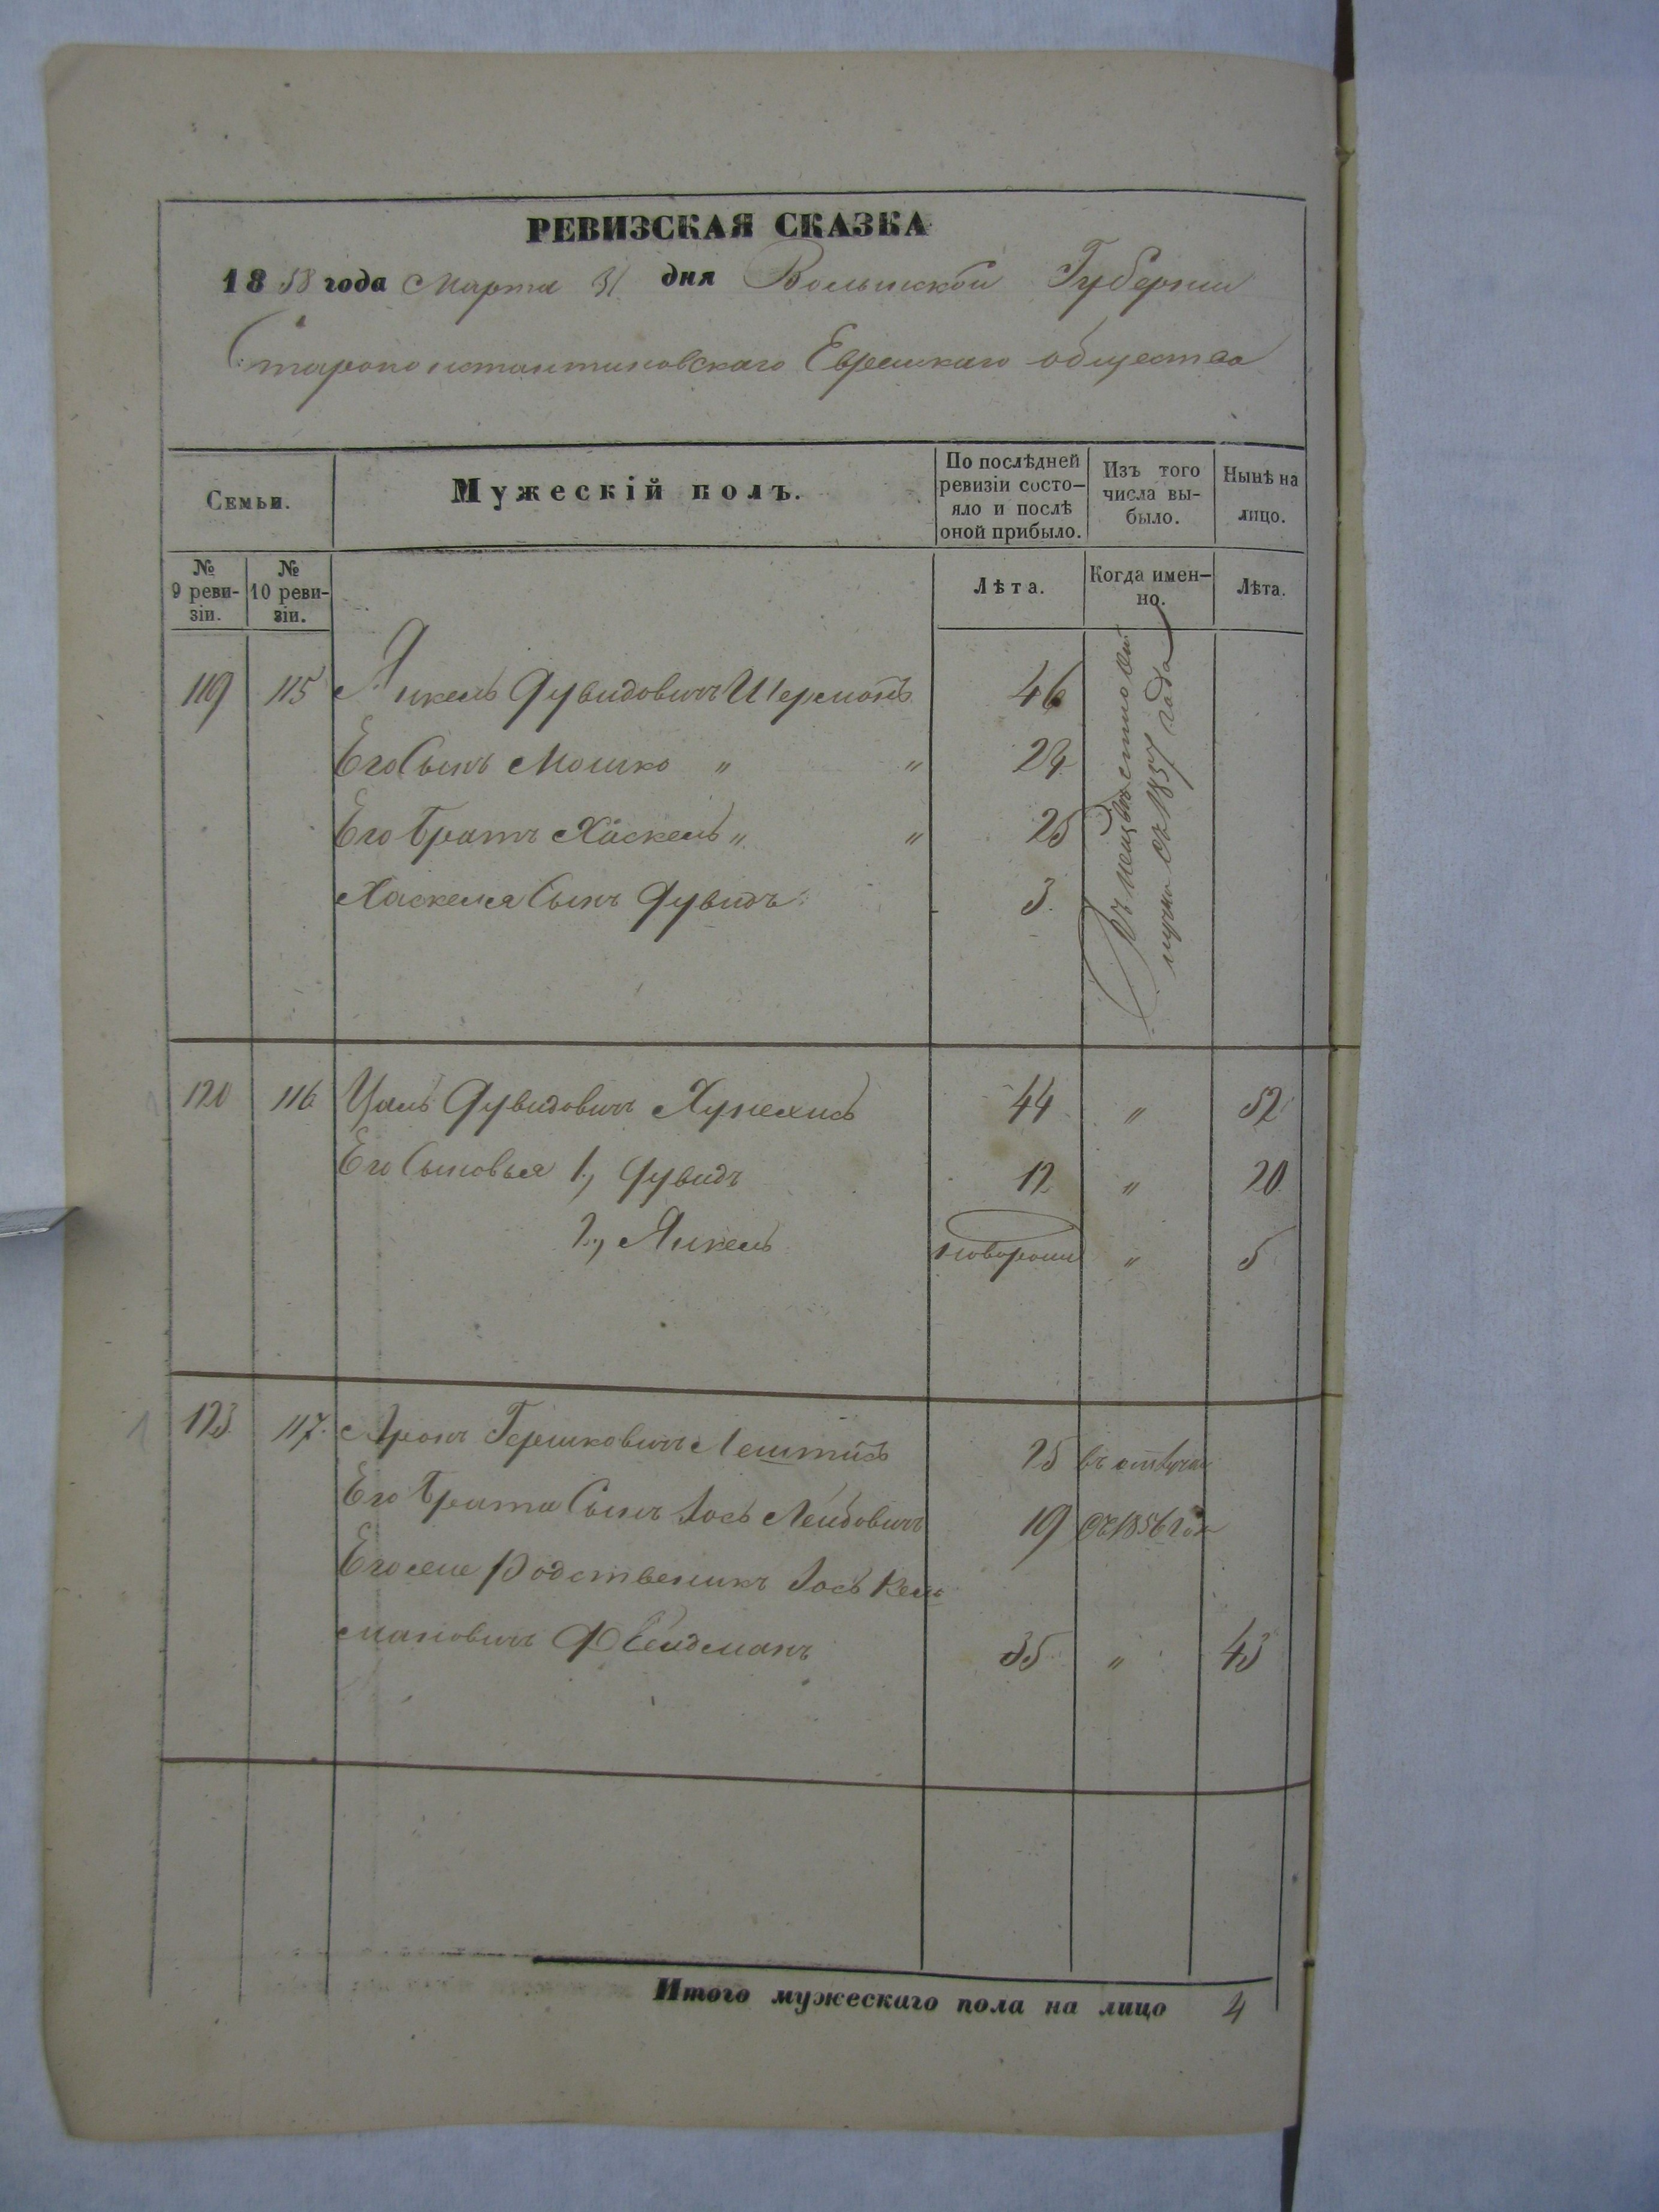 РЕВИЗСКАЯ СКАЗКА
1858 года Марта 31 дня Волынской Губернии
Староконстантиновскаго Еврейскаго общества
Семьи.
Мужескій полъ.
По послѣдней ревизіи состо-
яло и послѣ
оной прибыло.
Изъ того
числа вы-
было.
Нынѣ на
лицо.
№
9 реви-
зіи.
№
10 реви-
зіи.
Лѣта.
Когда имен-
но.
Лѣта.
119 115 Янкель Дувидовичъ 46
Его Сынъ Мошко " " 24
Его Братъ Хаскель " " 25
Хаскеля Сынъ Дувидъ 3
Въ неизвѣстной от
лучки съ 1857 года
120 116 Дувидовичъ 44 " 52
Его Сыновья 1, Дувидъ 12 " 20
2, Янкель новорожд " 5
123 117. Аронъ Гершковичъ 25 въ отлучки
Его Брата Сынъ Іось Лейбовичъ 19 съ 1856 год
Его еще Родственикъ Іось Кель
мановичъ Фельдманъ 35 " 43
Итого мужескаго пола на лицо 4